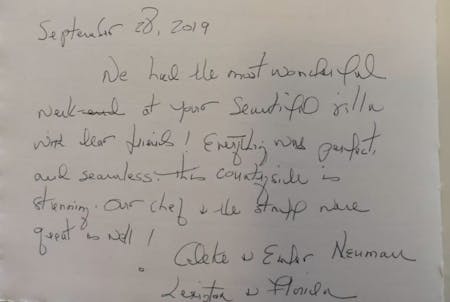 September 28, 2019
We had the most wonderful
week-end at your beautiful villa
with dear friends! Everything was perfect,
and seamless. this countryside is
stunning. Our chef & the staff were
great as well!
Neuman
Lexington & Florida